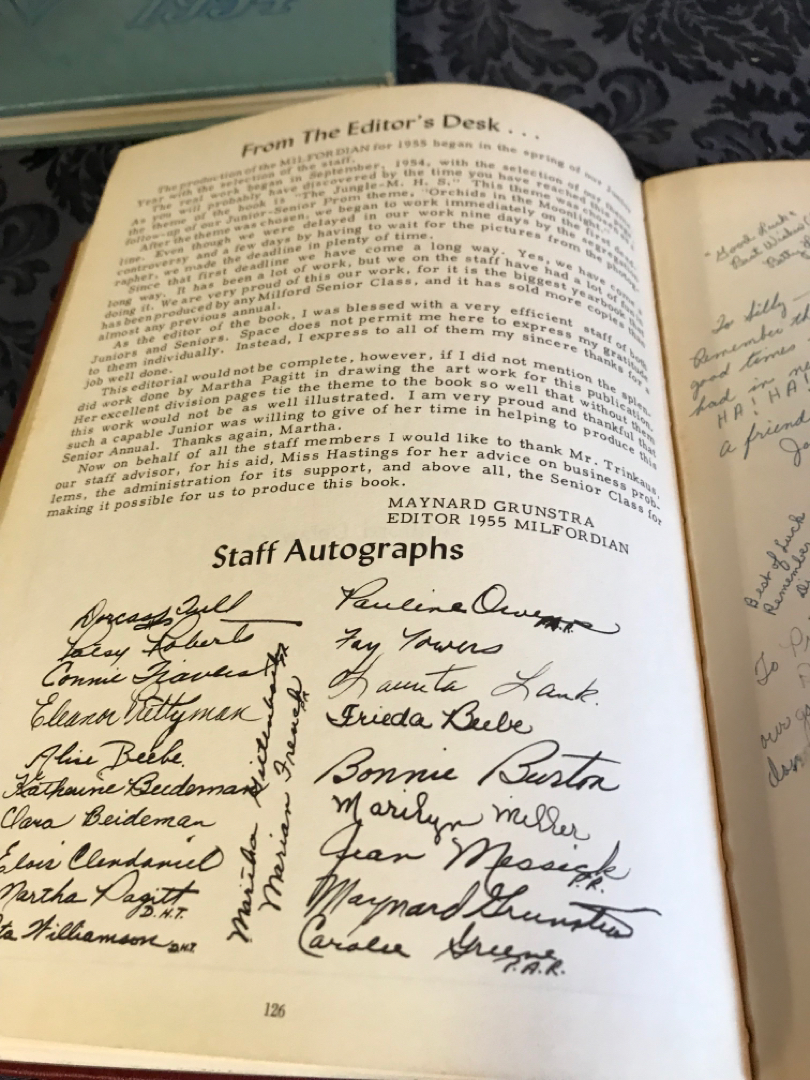 From The Editor's Desk . . .
The production of the MILFORDIAN for 1955 began in the spring of our Junior
Year with the selection of the staff.
The real work began in September, 1954, with the selection of our theme.
As you will probably have discovered by the time you have reached this
the theme of the book is "The Jungle-M. H. S." This theme was chosen as a
follow-up of our Junior-Senior Prom theme, "Orchids in the Moonlight."
After the theme was chosen, we began to work immediately on the first
line. Even though we were delayed in our work nine days by the segregation
controversy and a few days by having to wait for the pictures from the photog-
rapher, we made the deadline in plenty of time.
Since that first deadline we have come a long way. Yes, we have come a
long way. It has been a lot of work, but we on the staff have had a lot of fun
doing it. We are very proud of this our work, for it is the biggest yearbook
has been produced by any Milford Senior Class, and it has sold more copies than
almost any previous annual.
As the editor of the book, I was blessed with a very efficient staff of both
Juniors and Seniors. Space does not permit me here to express my gratitude
to them individually. Instead, I express to all of them my sincere thanks for a
job well done.
This editorial would not be complete, however, if I did not mention the splen-
did work done by Martha Pagitt in drawing the art work for this publication.
Her excellent division pages tie the theme to the book so well that without them
this work would not be as well illustrated. I am very proud and thankful that
such a capable Junior was willing to give of her time in helping to produce this
Senior Annual. Thanks again, Martha.
Now on behalf of all the staff members I would like to thank Mr. Trinkaus,
our staff advisor, for his aid, Miss Hastings for her advice on business prob-
lems, the administration for its support, and above all, the Senior Class for
making it possible for us to produce this book.
MAYNARD GRUNSTRA
EDITOR 1955 MILFORDIAN
Staff Autographs
Dorcas Tull
Patsy Roberts
Connie Travers
Eleanor Prettyman
Alise Beebe
Katherine Beideman
Clara Beideman
Elois Clendaniel
Martha Pagitt
D.H.T.
Williamson D.H.T.
Martha
Marian French
Pauline Owens
Fay Towers
Launta Lank.
Frieda Beebe
Bonnie Burton
Marilyn Miller
Jean Messick
P.R.
Maynard Grunstra
Carolee Greene
P.A.R.
126
"Good Luck &
Best Wishes
Betty
To Silly -
Remember th
good times
had in
HA! HA!
a friend
Best of Luck
Remember
To
our